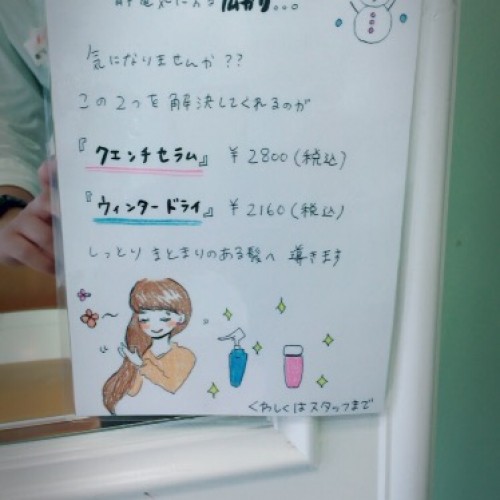 広がり...
気になりませんか??
この2つを解決してくれるのが
『クエンチセラム』 ¥2800(税込)
『ウィンタードライ』 ¥2160(税込)
しっとり まとまりのある髪へ 導きます
くわしくはスタッフまで